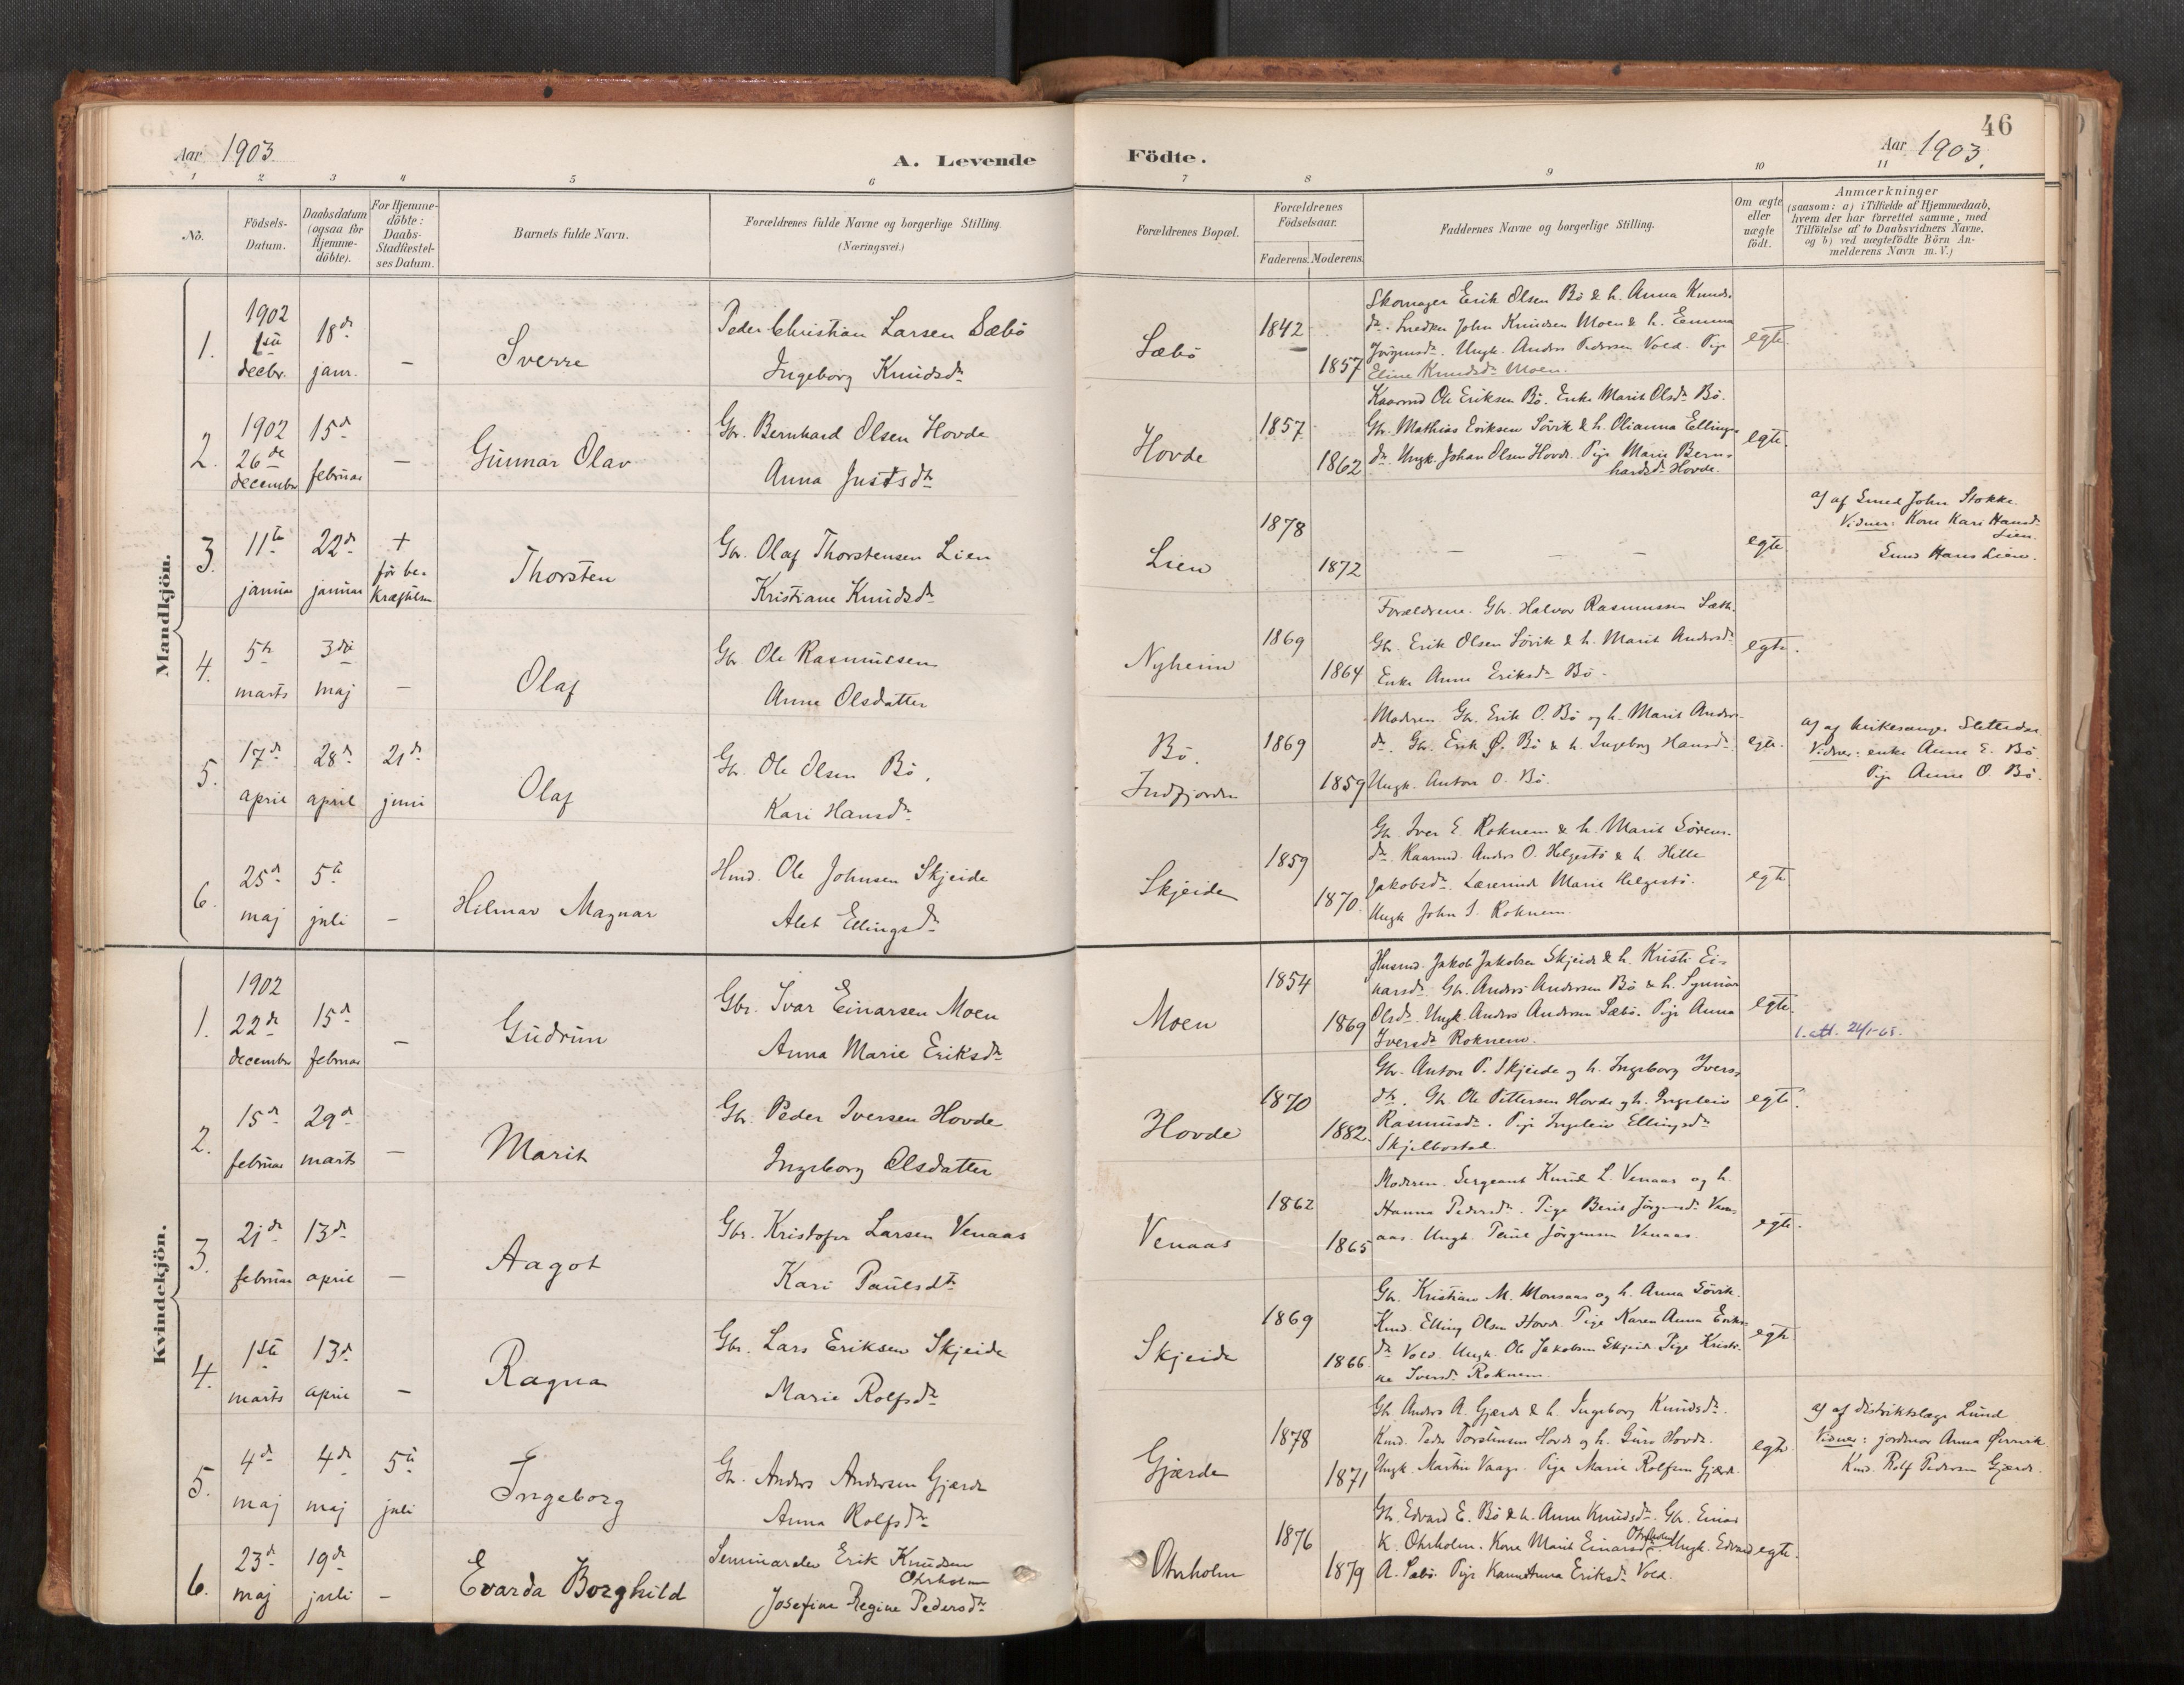 46
Aar 1903.
A. Levende
Födte.
Aar 1903.
1 2 3 4 5 6 7 8 9 10 11
No.
Födsels-
Datum.
Daabsdatum
(ogsaa for
Hjemme-
döbte).
For Hjemme-
döbte:
Daabs-
Stadfæstel-
ses Datum.
Barnets fulde Navn.
Forældrenes fulde Navne og borgerlige Stilling.
(Næringsvei.)
Forældrenes Bopæl.
Forældrenes
Födselsaar.
Faderens. Moderens.
Faddernes Navne og borgerlige Stilling.
Om ægte
eller
uægte
födt.
Anmærkninger
(saasom: a) i Tilfælde af Hjemmedaab,
hvem der har forrettet samme, med
Tilföielse af to Daabsvidners Navne,
og b) ved uægtefödte Börn An-
melderens Navn m. V.)
Mandkjön.
1.
1902
1ste
decbr.
18de
janr.
–
Sverre
Peder Christian Larsen Sæbö
Ingeborg Knudsdr
Sæbö
1842
1857
Skomager Erik Olsen Bö & h. Anna Knuds-
dr. Snedker John Knudsen Moen & h. Emma
Jörgensdr. Ungk. Anders Pedersen Vold. Pige
Eline Knudsdr Moen.
egte
2.
1902
26de
december
15de
februar
–
Gunnar Olav
Gbr. Bernhard Olsen Hovde
Anna Justsdr
Hovde
1857
1862
Kaarmd Ole Eriksen Bö. Enke Marit Olsdr Bö.
Gbr. Mathias Eriksen Sövik & h. Olianna Ellings-
dr. Ungk. Johan Olsen Hovde. Pige Marie Bern-
hardsdr Hovde.
egte.
3.
11te
januar
22de
januar
+
för be-
kræftelsen
Thorsten
Gbr. Olaf Thorstensen Lien
Kristiane Knudsdr
Lien
1878
1872
– – –
egte
a) af Smed John Stokke.
Vidner: Kone Kari Hansdr
Lien.
Smed Hans Lien.
4.
5te
marts
3die
maj
–
Olaf
Gbr. Ole Rasmussen
Anne Olsdatter
Nyheim
1869
1864
Forældrene. Gbr. Halvor Rasmussen Sæth.
Gbr. Erik Olsen Sövik & h. Marit Andersdr
Enke Anne Eriksdr Bö.
egte.
5.
17de
april
28de
april
21de
juni
Olaf
Gbr. Ole Olsen Bö.
Kari Hansdr
Bö.
Indfjorden
1869
1859
Moderen. Gbr. Erik O. Bö og h. Marit Anders-
dr. Gbr. Erik Ø. Bö & h. Ingeborg Hansdr.
Ungk. Anton O. Bö.
egte.
a) af kirkesanger
Vidner: enke Anne E. Bö
Pige Anne O. Bö.
6.
25de
maj
5te
juli
–
Hilmar Magnar
Hmd. Ole Johnsen Skjeide
Alet Ellingsdr
Skjeide
1859
1870.
Gbr. Iver E. Roknem & h. Marit Sörens-
dr. Kaarmd. Anders O. Helgestö & h. Helle
Jakobsdr. Lærerinde Marie Helgestö.
Ungk John I. Roknem.
egte
Kvindekjön.
1.
1902
22de
december
15de
februar
–
Gudrun
Gbr. Ivar Einarsen Moen
Anna Marie Eriksdr
Moen
1854
1869
Husmd. Jakob Jakobsen Skjeide & h. Kristi Ei-
narsdr. Gbr. Anders Andersen Bö & h. Synnöv
Olsdr. Ungk. Anders Andersen Sæbö. Pige Anna
Iversdr Roknem.
egte.
2.
15de
februar
29de
marts
–
Marit
Gbr. Peder Iversen Hovde
Ingeborg Olsdatter
Hovde
1870
1882.
Gbr. Anton P. Skjeide og h. Ingeborg Ivers-
dr. Gbr. Ole Pettersen Hovde og h. Ingeleiv
Rasmusdr. Pige Ingeleiv Ellingsdr
Skjelbostad.
egte.
3.
21de
februar
13de
april
–
Aagot
Gbr. Kristofer Larsen Venaas
Kari Paulsdr
Venaas
1862
1865
Moderen. Sergeant Knud L. Venaas og h.
Hanna Pedersdr. Pige Berit Jörgensdr Ven-
aas. Ungk. Jörgensen Venaas.
egte.
4.
1ste
marts
13de
april
–
Ragna
Gbr. Lars Eriksen Skjeide
Marie Rolfsdr
Skjeide
1869
1866.
Gbr. Kristian M. Monsaas og h. Anna Sövik.
Kmd. Elling Olsen Hovde. Pige Karen Anna Eriks-
dr Vold. Ungk. Ole Jakobsen Skjeide. Pige Kristi-
ne Iversdr Roknem.
egte
5.
4de
maj
4de
maj
5te
juli
Ingeborg
Gbr. Anders Andersen Gjærde
Anna Rolfsdr
Gjærde
1878
1871
Gbr. Anders A. Gjærde & h. Ingeborg Knudsdr.
Kmd. Peder Torstensen Hovde og h. Guro Hovde.
Ungk. Martin Vaage. Pige Marie Rolfsen Gjærde.
egte.
a) af distriktslæge Lund
Vidner: jordmor Anna
Kmd. Rolf Pedersen Gjærde.
6.
23de
maj
19de
juli
–
Evarda Borghild
Erik Knudsen
Ohrholm
Josefine Regine Pedersdr
Ohrholm
1876
1879
Gbr. Edvard E. Bö & h. Anne Knudsdr. Gbr. Einar
K. Ohrholm. Kone Marit Einarsdr. Ungk. Edvard
A. Sæbö. Pige Karen Anna Eriksdr Vold.
egte.